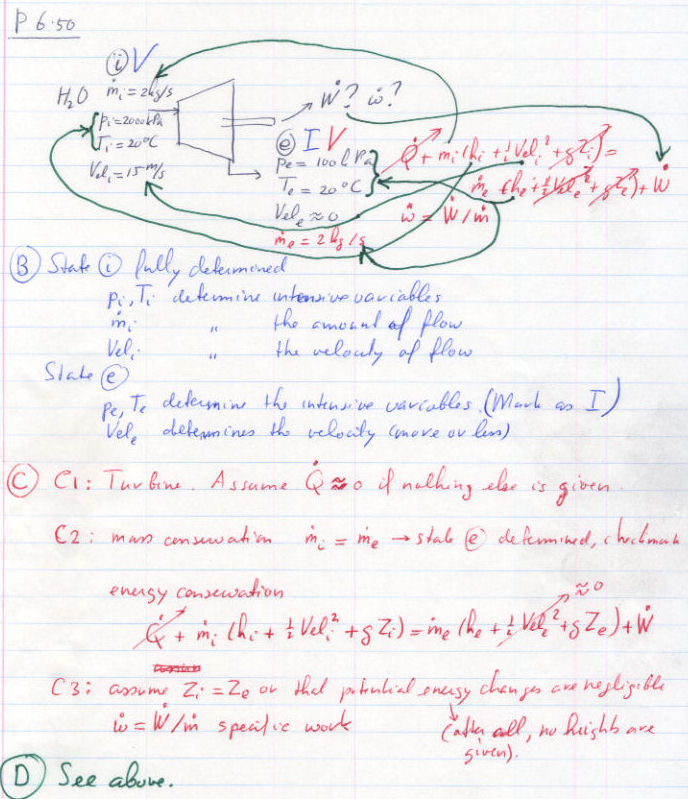 P 6.50
ⓘ V
H₂O ṁᵢ = 2kg/s
Pᵢ=2000kPa
Tᵢ = 20°C
Velᵢ=15 m/s
Ẇ? ẇ?
ⓔ I V
Pe = 100 kPa
Te = 20°C
Velₑ ≈ 0
ṁe = 2 kg/s
Q̇ + ṁᵢ (hᵢ + ½ Velᵢ² + gZᵢ) =
ṁe (he + ½ Vele² + gZe) + Ẇ
ẇ = Ẇ/ṁ
Ⓑ State ⓘ fully determined
Pᵢ, Tᵢ determine intensive variables
ṁᵢ " the amount of flow
Velᵢ " the velocity of flow
State ⓔ
Pe, Te determine the intensive variables. (Mark as I)
Vele determines the velocity (more or less)
Ⓒ C1: Turbine. Assume Q̇ ≈ 0 if nothing else is given.
C2: mass conservation ṁᵢ = ṁe → state ⓔ determined, checkmark
energy conservation ≈ 0
Q̇ + ṁᵢ (hᵢ + ½ Velᵢ² + gZᵢ) = ṁe (he + ½ Vele² + gZe) + Ẇ
C3: assume Zᵢ = Ze or that potential energy changes are negligible
ẇ = Ẇ/ṁ specific work (after all, no heights are
given).
Ⓓ See above.